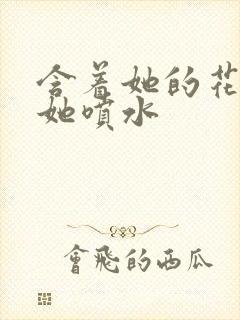 含着她的花
她喷水
會飛的西瓜